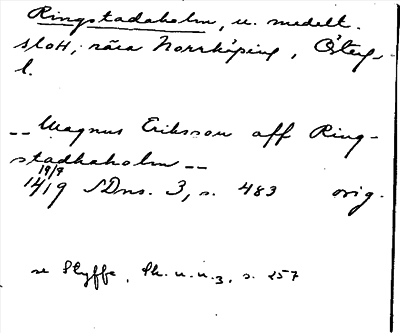 Ringstadaholm, u. medelt.
slott, nära Norrköping, Österg.
l.
-- Magnus Eriksson aff Ring-
stadhaholm --
19/7
1419 SDns. 3, s. 483 orig.
se Styffe, Sk. u. u. 3, s. 257